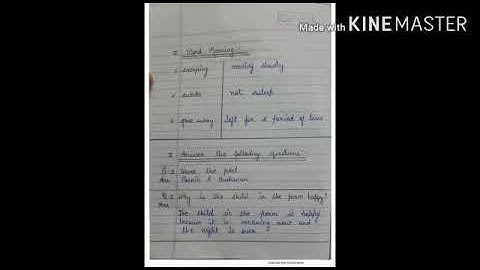 Made with KINEMASTER
I Word Meaning :
creeping moving slowly
awake not asleep
gone away left for a period of time
II Answer the following questions :
Q-1 Name the poet
Ans
Q-2 Why is the child in the poem happy?
Ans
The child in the poem is happy
because it is morning now and
the night is over